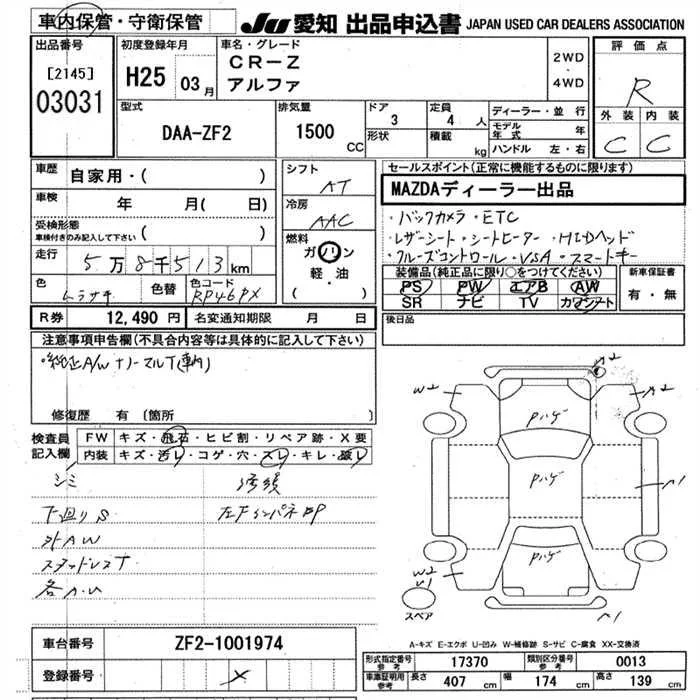 車内保管・守衛保管
JU 愛知 出品申込書 JAPAN USED CAR DEALERS ASSOCIATION
出品番号
[2145]
03031
初度登録年月
H25 03月
車名・グレード
CR-Z
アルファ
2WD
・
4WD
評価点
R
外装 内装
C C
型式
DAA-ZF2
排気量
1500 CC
ドア
3
形状
定員
4 人
積載
kg
ディーラー・並行
モデル年式 年
ハンドル 左・右
車歴 自家用・( )
車検 年 月( 日)
受検形態
車検付きのみ記入して下さい ( )
走行 5万8千513km
色 ムラサキ 色替 色コード RP46PX
シフト
AT
冷房
AAC
燃料
ガソリン
軽・油
( )
セールスポイント(正常に機能するものに限ります)
MAZDAディーラー出品
・バックカメラ・ETC
・レザーシート・シートヒーター・HIDヘッド
・クルーズコントロール・VSA・スマートキー
装備品(純正品に限り○をつけてください)
PS PW エアB AW
SR ナビ TV カワシート
新車保証書
有・無
R券 12,490 円 名変通知期限 月 日
後日品
注意事項申告欄(不具合内容等は具体的に記入して下さい)
・純正A/W+ノーマルT(車内)
修復歴 有〔箇所
検査員記入欄
FW キズ・飛石・ヒビ割・リペア跡・X要
内装 キズ・汚レ・コゲ・穴・スレ・キレ・破レ
シミ
下廻りS 左Fインパネ部
外AW
スタッドレスT
各A・U
W2 A2 A2
Pハゲ
Pハゲ
Pハゲ
A1
W2
U1
A1
スペア
A-キズ E-エクボ U-凹み W-補修跡 S-サビ C-腐食 XX-交換済
車台番号 ZF2-1001974
登録番号 X
形式指定番号参考 17370 類別区分番号参考 0013
車庫証明用参考 長さ 407 cm 幅 174 cm 高さ 139 cm